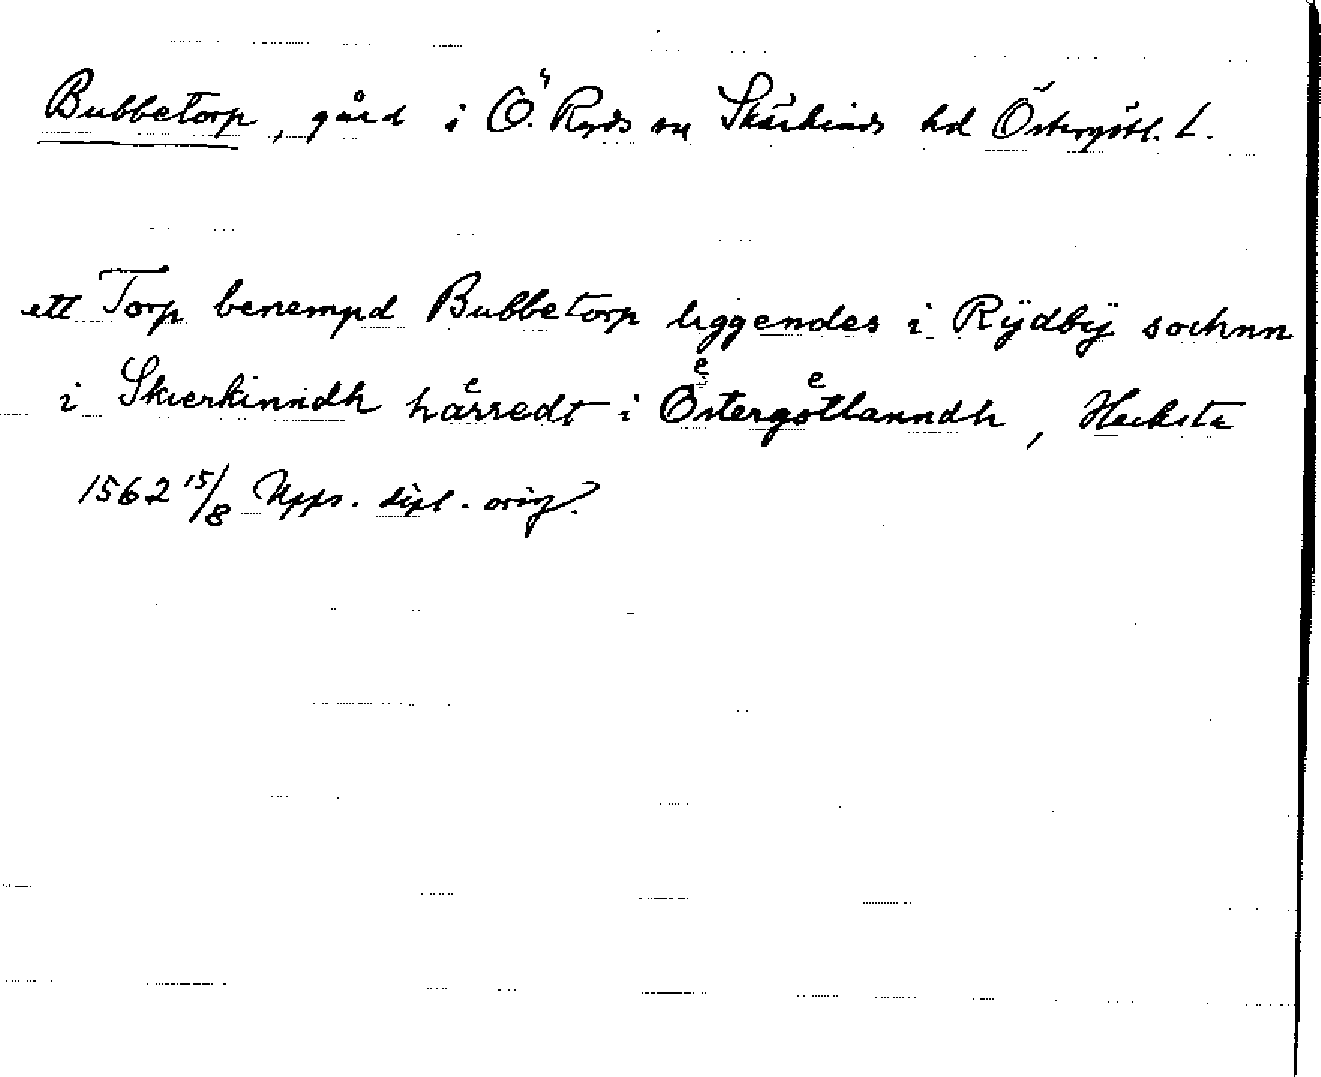 Bubbetorp, gård i Ö. Ryds sn Skärkinds hd Östergötl. L.
ett Torp benempd Bubbetorp liggendes i Rÿdbÿ sochnn
i Skierkinndh haͤrredt i Oͤstergoͤtlanndh, Hecksta
1562 15/8 Upps. dipl. orig.